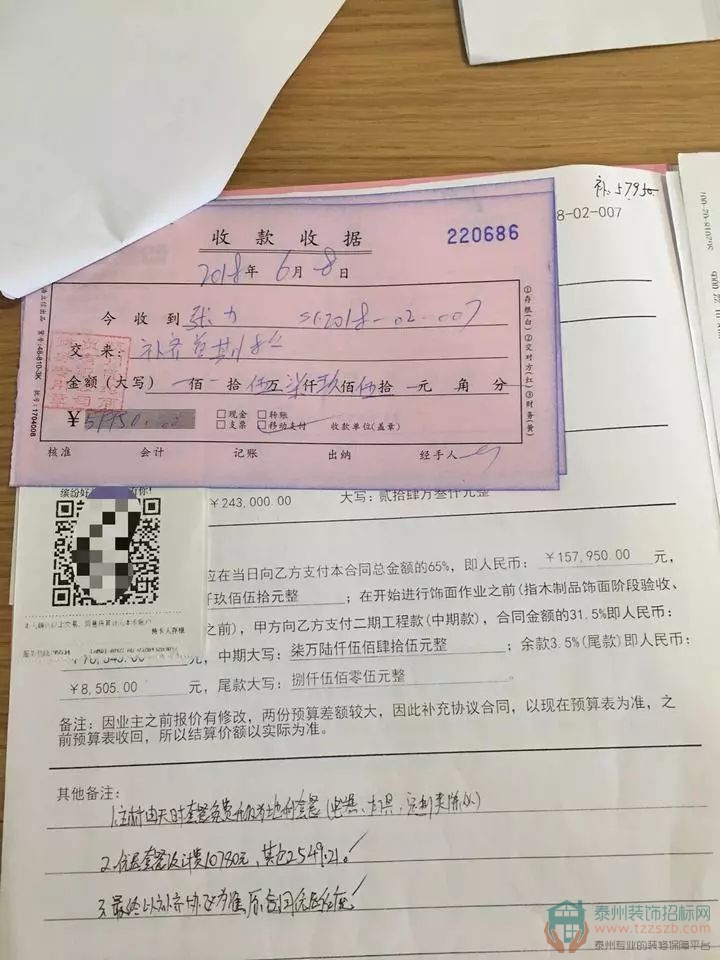 补:57950
8-02-007
收款收据
220686
2018年 6月 8日
今收到 张力 2018-02-007
交来: 补齐首期款
金额(大写) 佰 拾 伍万 柒仟 玖佰 伍拾 元 角 分
¥ 57950.00
□现金 □转账
□支票 □移动支付 收款单位(盖章)
核准 会计 记账 出纳 经手人
①存根(白)②交对方(红)③财务(黄)
¥243,000.00 大写:贰拾肆万叁仟元整
应在当日向乙方支付本合同总金额的65%,即人民币: ¥157,950.00 元,
仟玖佰伍拾元整 ;在开始进行饰面作业之前(指木制品饰面阶段验收、
之前),甲方向乙方支付二期工程款(中期款),合同金额的31.5%即人民币:
元,中期大写: 柒万陆仟伍佰肆拾伍元整 ;余款3.5%(尾款)即人民币:
¥8,505.00 元,尾款大写: 捌仟伍佰零伍元整
备注:因业主之前报价有修改,两份预算差额较大,因此补充协议合同,以现在预算表为准,之
前预算表收回,所以结算价额以实际为准。
持卡人存根
其他备注:
1.主材由天时套餐免费升级为
2.优惠套餐设计费10780元,其它2549.21。✓
3.最终以补充协议为准,原合同优惠
泰州装饰招标网
www.tzzszb.com
泰州专业的装修保障平台